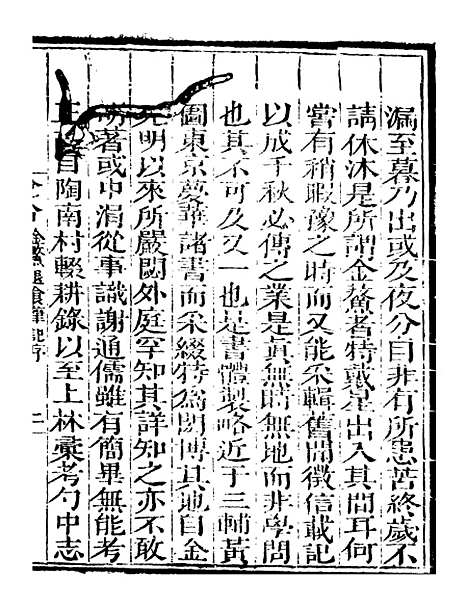 漏至暮乃出或及夜分自非有所患苦終歲不
請休沐是所謂金鰲者特戴星出入其間耳何
嘗有稍暇豫之時而又能采輯舊聞徵信載記
以成千秋必傳之業是眞無時無地而非學問
也其不可及又一也是書體製略近于三輔黃
圖東京夢華諸書而采綴特為閎博其地自金
元明以來所嚴閟外庭罕知其詳知之亦不敢
著或中涓從事識謝通儒雖有簡畢無能考
自陶南村輟耕錄以至上林彙考勺中志
金鰲退食筆記序
二